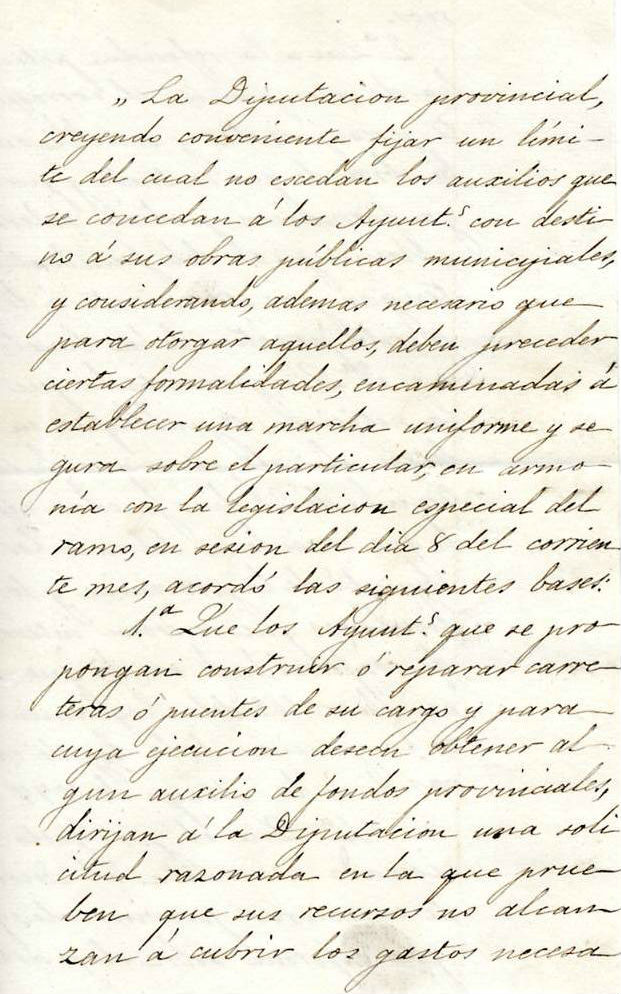 „ La Diputacion provincial,
creyendo conveniente fijar un lími-
te del cual no escedan los auxilios que
se concedan á los Ayunt.s con desti
no á sus obras públicas municipales,
y considerando, ademas necesario que
para otorgar aquellos, deben preceder
ciertas formalidades, encaminadas á
establecer una marcha uniforme y se
gura sobre el particular, en armo-
nía con la legislacion especial del
ramo, en sesion del dia 8 del corrien
te mes, acordó las siguientes bases:
1.a Que los Ayunt.s que se pro-
pongan construir ó reparar carre-
teras ó puentes de su cargo y para
cuya ejecucion deseen obtener al-
gun auxilio de fondos provinciales,
dirijan á la Diputacion una soli
citud razonada en la que prue-
ben que sus recursos no alcan-
zan á cubrir los gastos necesa